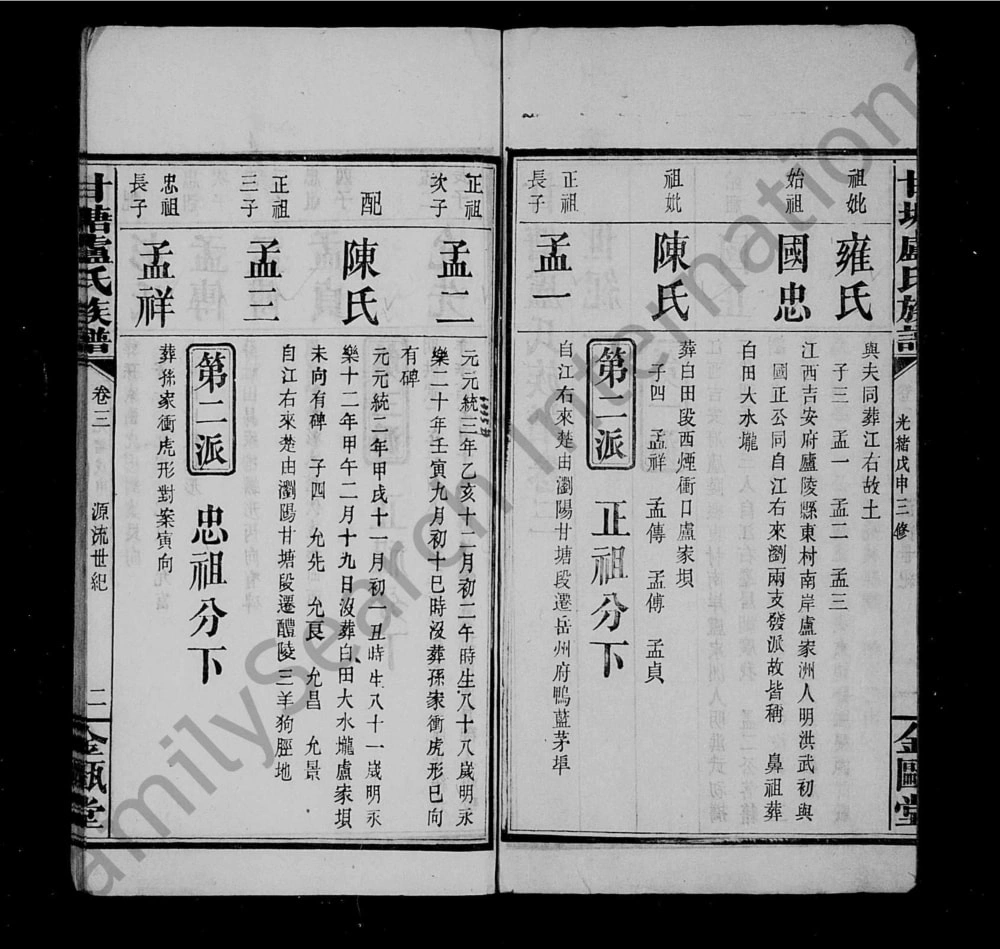 甘塘盧氏族譜
卷
光緒戊申三修
一
金甌堂
祖妣
雍氏
與夫同葬江右故土
子三 孟一 孟二 孟三
始祖
國忠
江西吉安府廬陵縣東村南岸盧家洲人明洪武初與
國正公同自江右來瀏兩支發派故皆稱 鼻祖葬
白田大水壠
祖妣
陳氏
葬白田段西煙衝口盧家垻
子四 孟祥 孟傳 孟傅 孟貞
第二派 正祖分下
正祖
長子
孟一
自江右來楚由瀏陽甘塘段遷岳州府鴨藍茅埠
正祖
次子
孟二
元元統三年乙亥十二月初二午時生八十八歲明永
樂二十年壬寅九月初十巳時沒葬孫家衝虎形巳向
有碑
配
陳氏
元元統二年甲戌十一月初一丑時生八十一歲明永
樂十二年甲午二月十九日沒葬白田大水壠盧家垻
未向有碑 子四 允先 允良 允昌 允景
正祖
三子
孟三
自江右來楚由瀏陽甘塘段遷醴陵三羊狗脛地
第二派 忠祖分下
忠祖
長子
孟祥
葬孫家衝虎形對案寅向
甘塘盧氏族譜
卷三
源流世紀
二
金甌堂
FamilySearch International